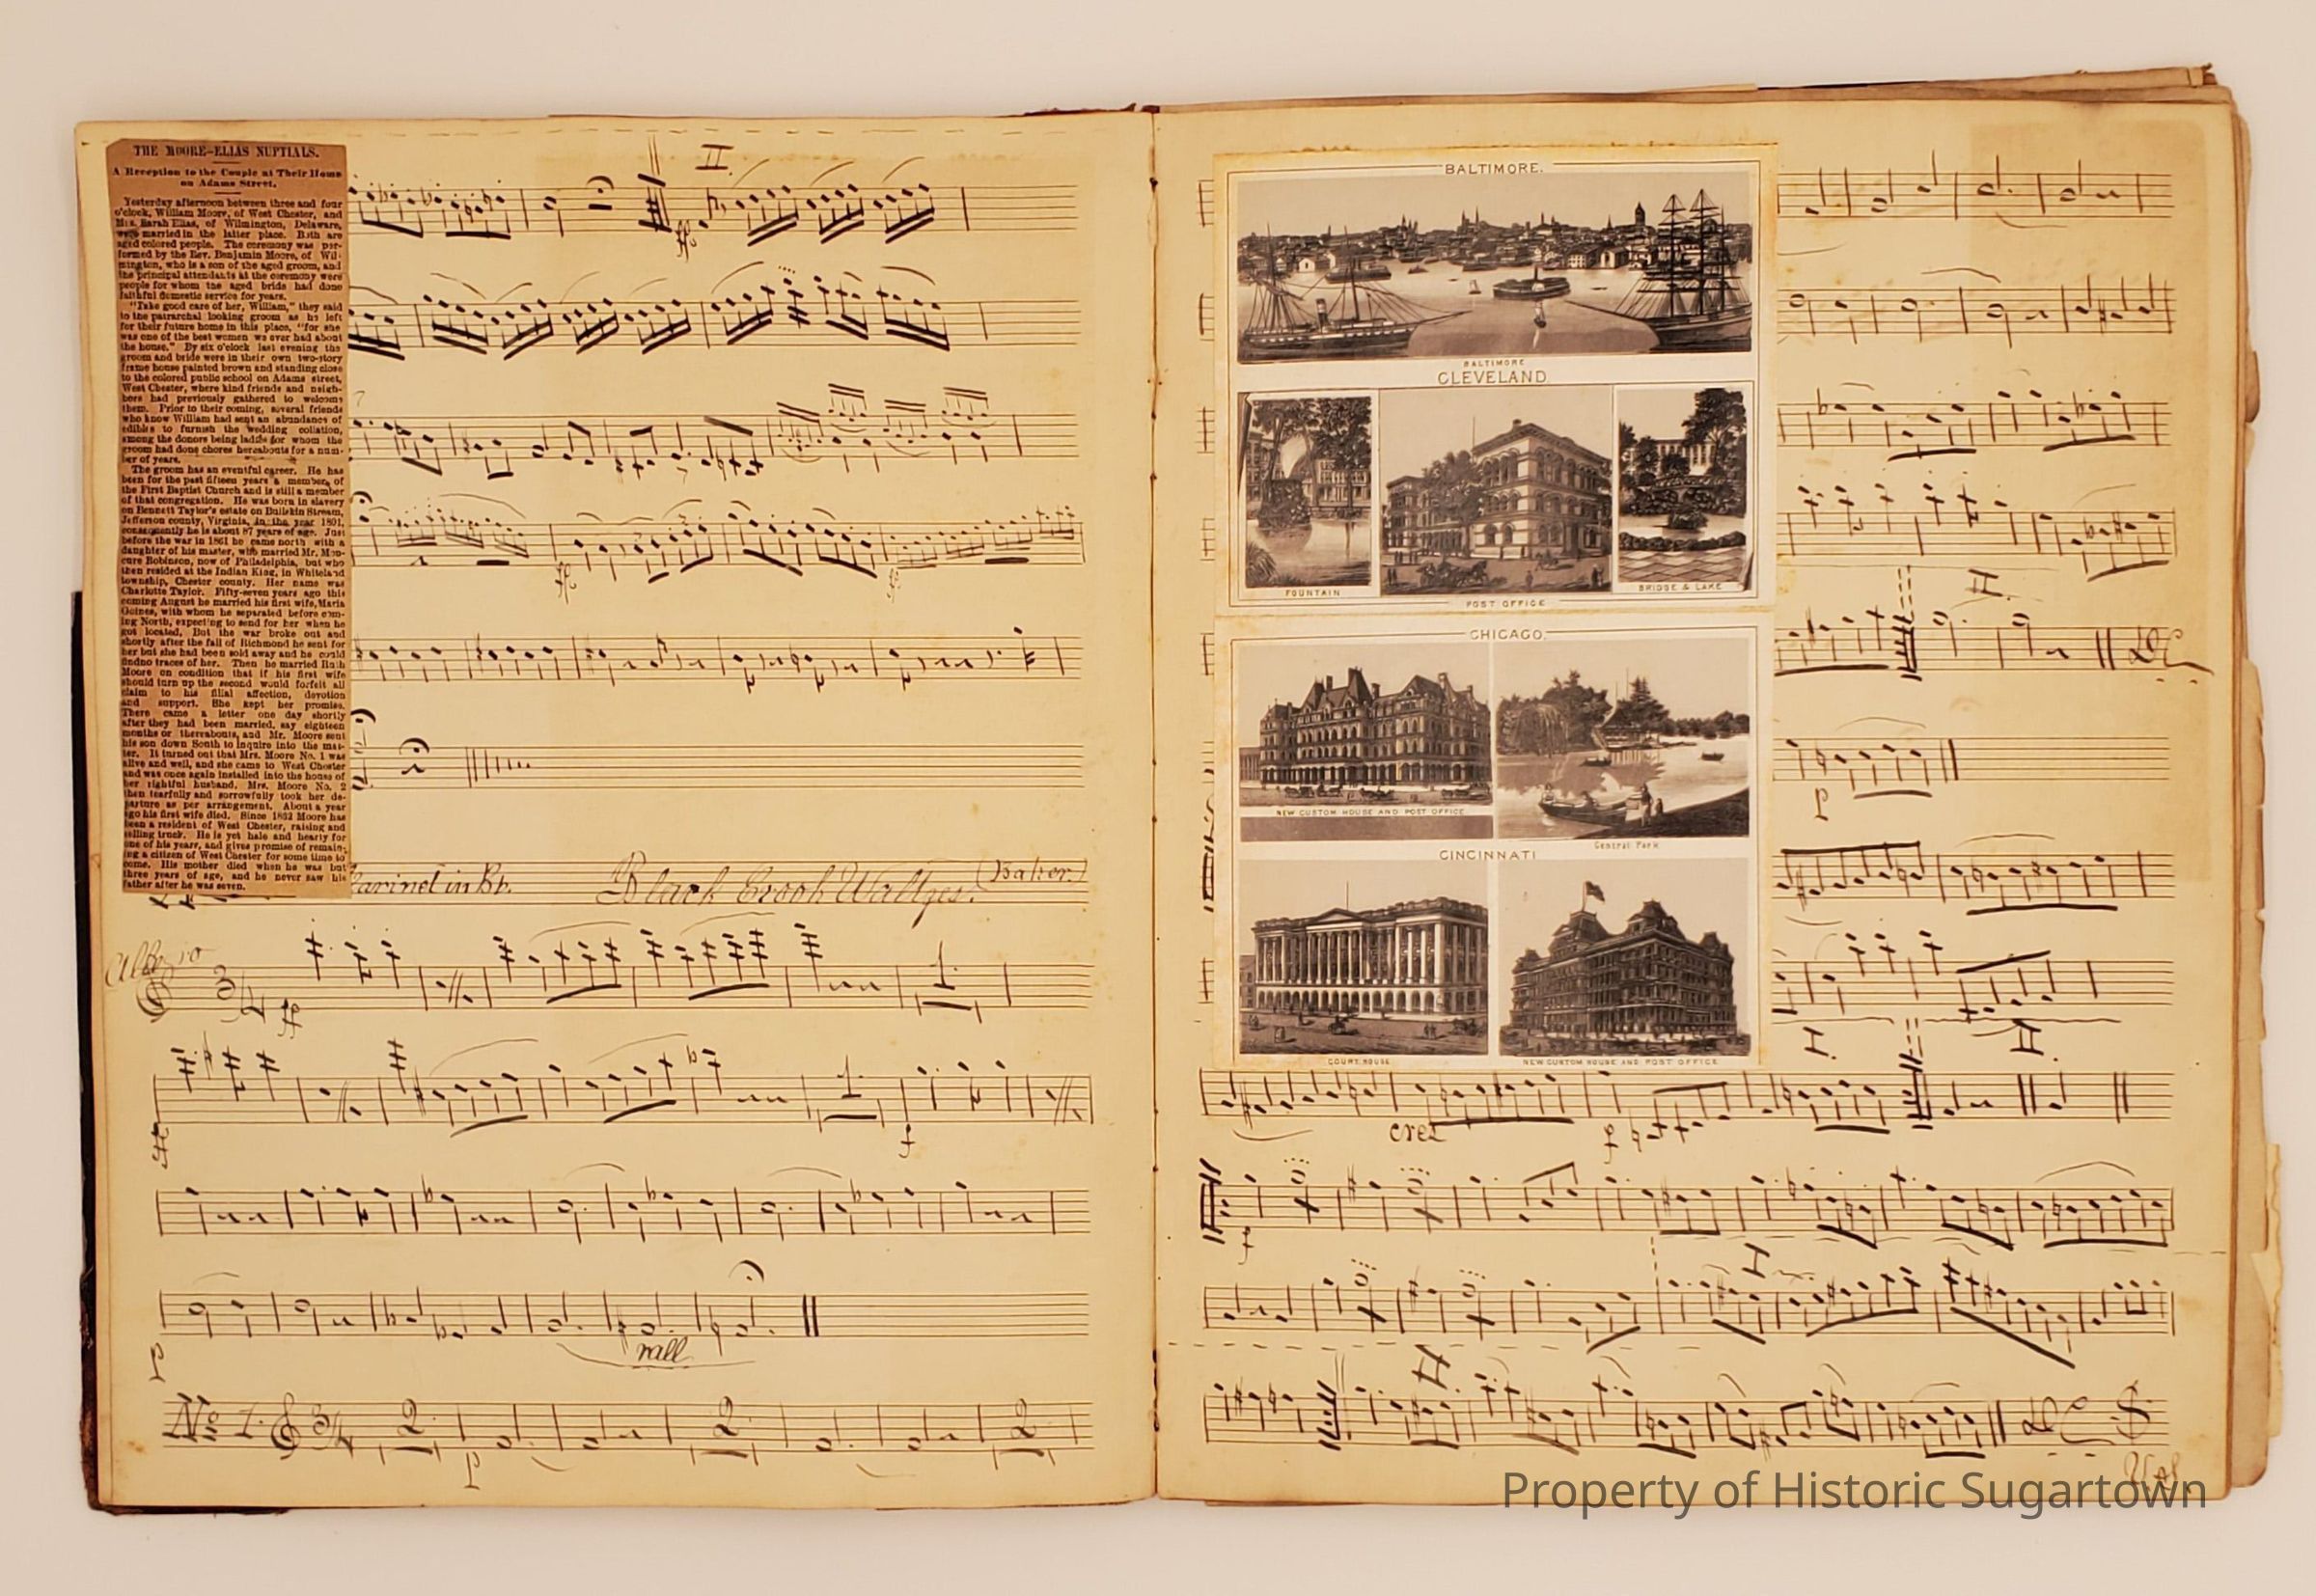 THE MOORE-ELIAS NUPTIALS.
A Reception to the Couple at Their Home
on Adams Street.
Yesterday afternoon between three and four
o'clock, William Moore, of West Chester, and
Mrs. Sarah Elias, of Wilmington, Delaware,
were married in the latter place. Both are
aged colored people. The ceremony was per-
formed by the Rev. Benjamin Moore, of Wil-
mington, who is a son of the aged groom, and
the principal attendants at the ceremony were
people for whom the aged bride had done
faithful domestic service for years.
"Take good care of her, William," they said
to the patrarchal looking groom as he left
for their future home in this place, "for she
was one of the best women we ever had about
the house." By six o'clock last evening the
groom and bride were in their own two-story
frame house painted brown and standing close
to the colored public school on Adams street,
West Chester, where kind friends and neigh-
bors had previously gathered to welcome
them. Prior to their coming, several friends
who know William had sent an abundance of
edibles to furnish the wedding collation,
among the donors being ladies for whom the
groom had done chores hereabouts for a num-
ber of years.
The groom has an eventful career. He has
been for the past fifteen years a member of
the First Baptist Church and is still a member
of that congregation. He was born in slavery
on Bennett Taylor's estate on Bullskin Stream,
Jefferson county, Virginia, in the year 1801,
consequently he is about 87 years of age. Just
before the war in 1861 he came north with a
daughter of his master, who married Mr. Mon-
cure Robinson, now of Philadelphia, but who
then resided at the Indian King, in Whiteland
township, Chester county. Her name was
Charlotte Taylor. Fifty-seven years ago this
coming August he married his first wife, Maria
Goines, with whom he separated before com-
ing North, expecting to send for her when he
got located. But the war broke out and
shortly after the fall of Richmond he sent for
her but she had been sold away and he could
findno traces of her. Then he married Ruth
Moore on condition that if his first wife
should turn up the second would forfeit all
claim to his filial affection, devotion
and support. She kept her promise.
There came a letter one day shortly
after they had been married, say eighteen
months or thereabouts, and Mr. Moore sent
his son down South to inquire into the mat-
ter. It turned out that Mrs. Moore No. 1 was
alive and well, and she came to West Chester
and was once again installed into the house of
her rightful husband. Mrs. Moore No. 2
then tearfully and sorrowfully took her de-
parture as per arrangement. About a year
ago his first wife died. Since 1862 Moore has
been a resident of West Chester, raising and
selling truck. He is yet hale and hearty for
one of his years, and gives promise of remain-
ing a citizen of West Chester for some time to
come. His mother died when he was but
three years of age, and he never saw his
father after he was seven.
II
larinet in Bb. Black Crook Waltzes. (Baker)
Allegro
3/4
ff
f
rall
P
No 1. 3/4 2 2 2
P
BALTIMORE.
BALTIMORE
CLEVELAND
FOUNTAIN
POST OFFICE
BRIDGE & LAKE
CHICAGO.
NEW CUSTOM HOUSE AND POST OFFICE
Central Park
CINCINNATI
COURT HOUSE
NEW CUSTOM HOUSE AND POST OFFICE
DC
cres
f
f
DC
Property of Historic Sugartown